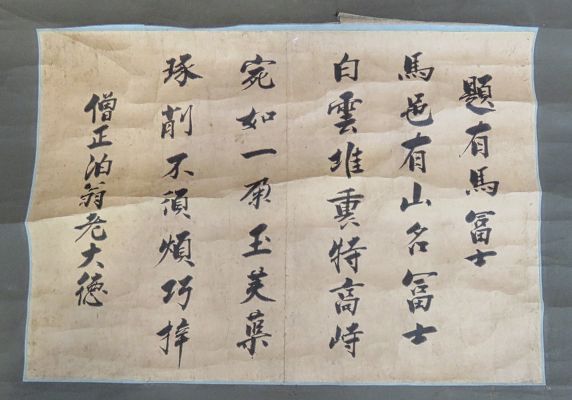 題有馬冨士
馬邑有山名冨士
白雲堆裏特高峙
宛如一朶玉芙蕖
琢削不須煩巧梓
僧正泊翁老大徳